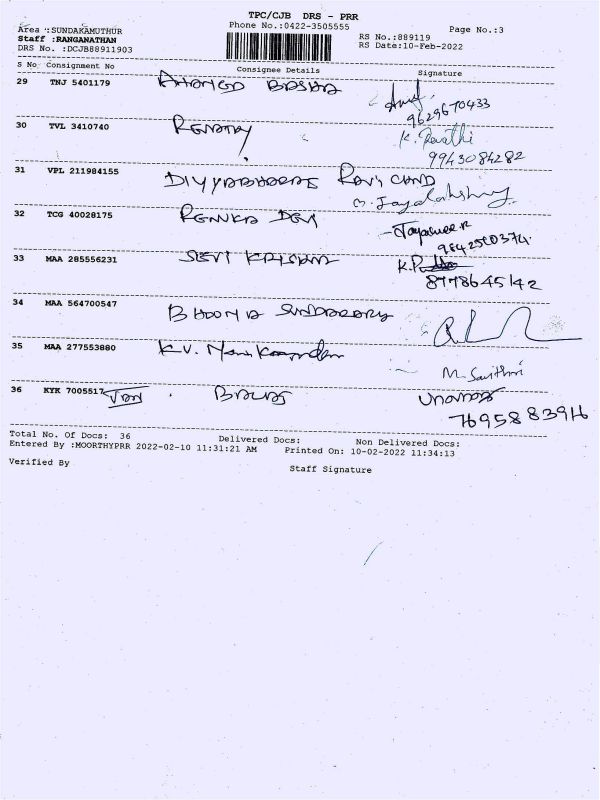 TPC/CJB DRS - PRR
Area :SUNDAKAMUTHUR
Phone No.:0422-3505555
Page No.:3
Staff :RANGANATHAN
RS No.:889119
DRS No. :DCJB88911903
RS Date:10-Feb-2022
S No Consignment No Consignee Details Signature
29 TNJ 5401179
9629670433
30 TVL 3410740 K. Revathi
9943084282
31 VPL 211984155 Ravi Chand
32 TCG 40028175 Renuka Devi
9842500374
33 MAA 285556231
8778645142
34 MAA 564700547 Bhooma Sundararaj
35 MAA 277553880 K.V. Manikandan
M. Savithri
36 KYK 7005517 Balaj
7695883916
Total No. Of Docs: 36 Delivered Docs: Non Delivered Docs:
Entered By :MOORTHYPRR 2022-02-10 11:31:21 AM Printed On: 10-02-2022 11:34:13
Verified By Staff Signature